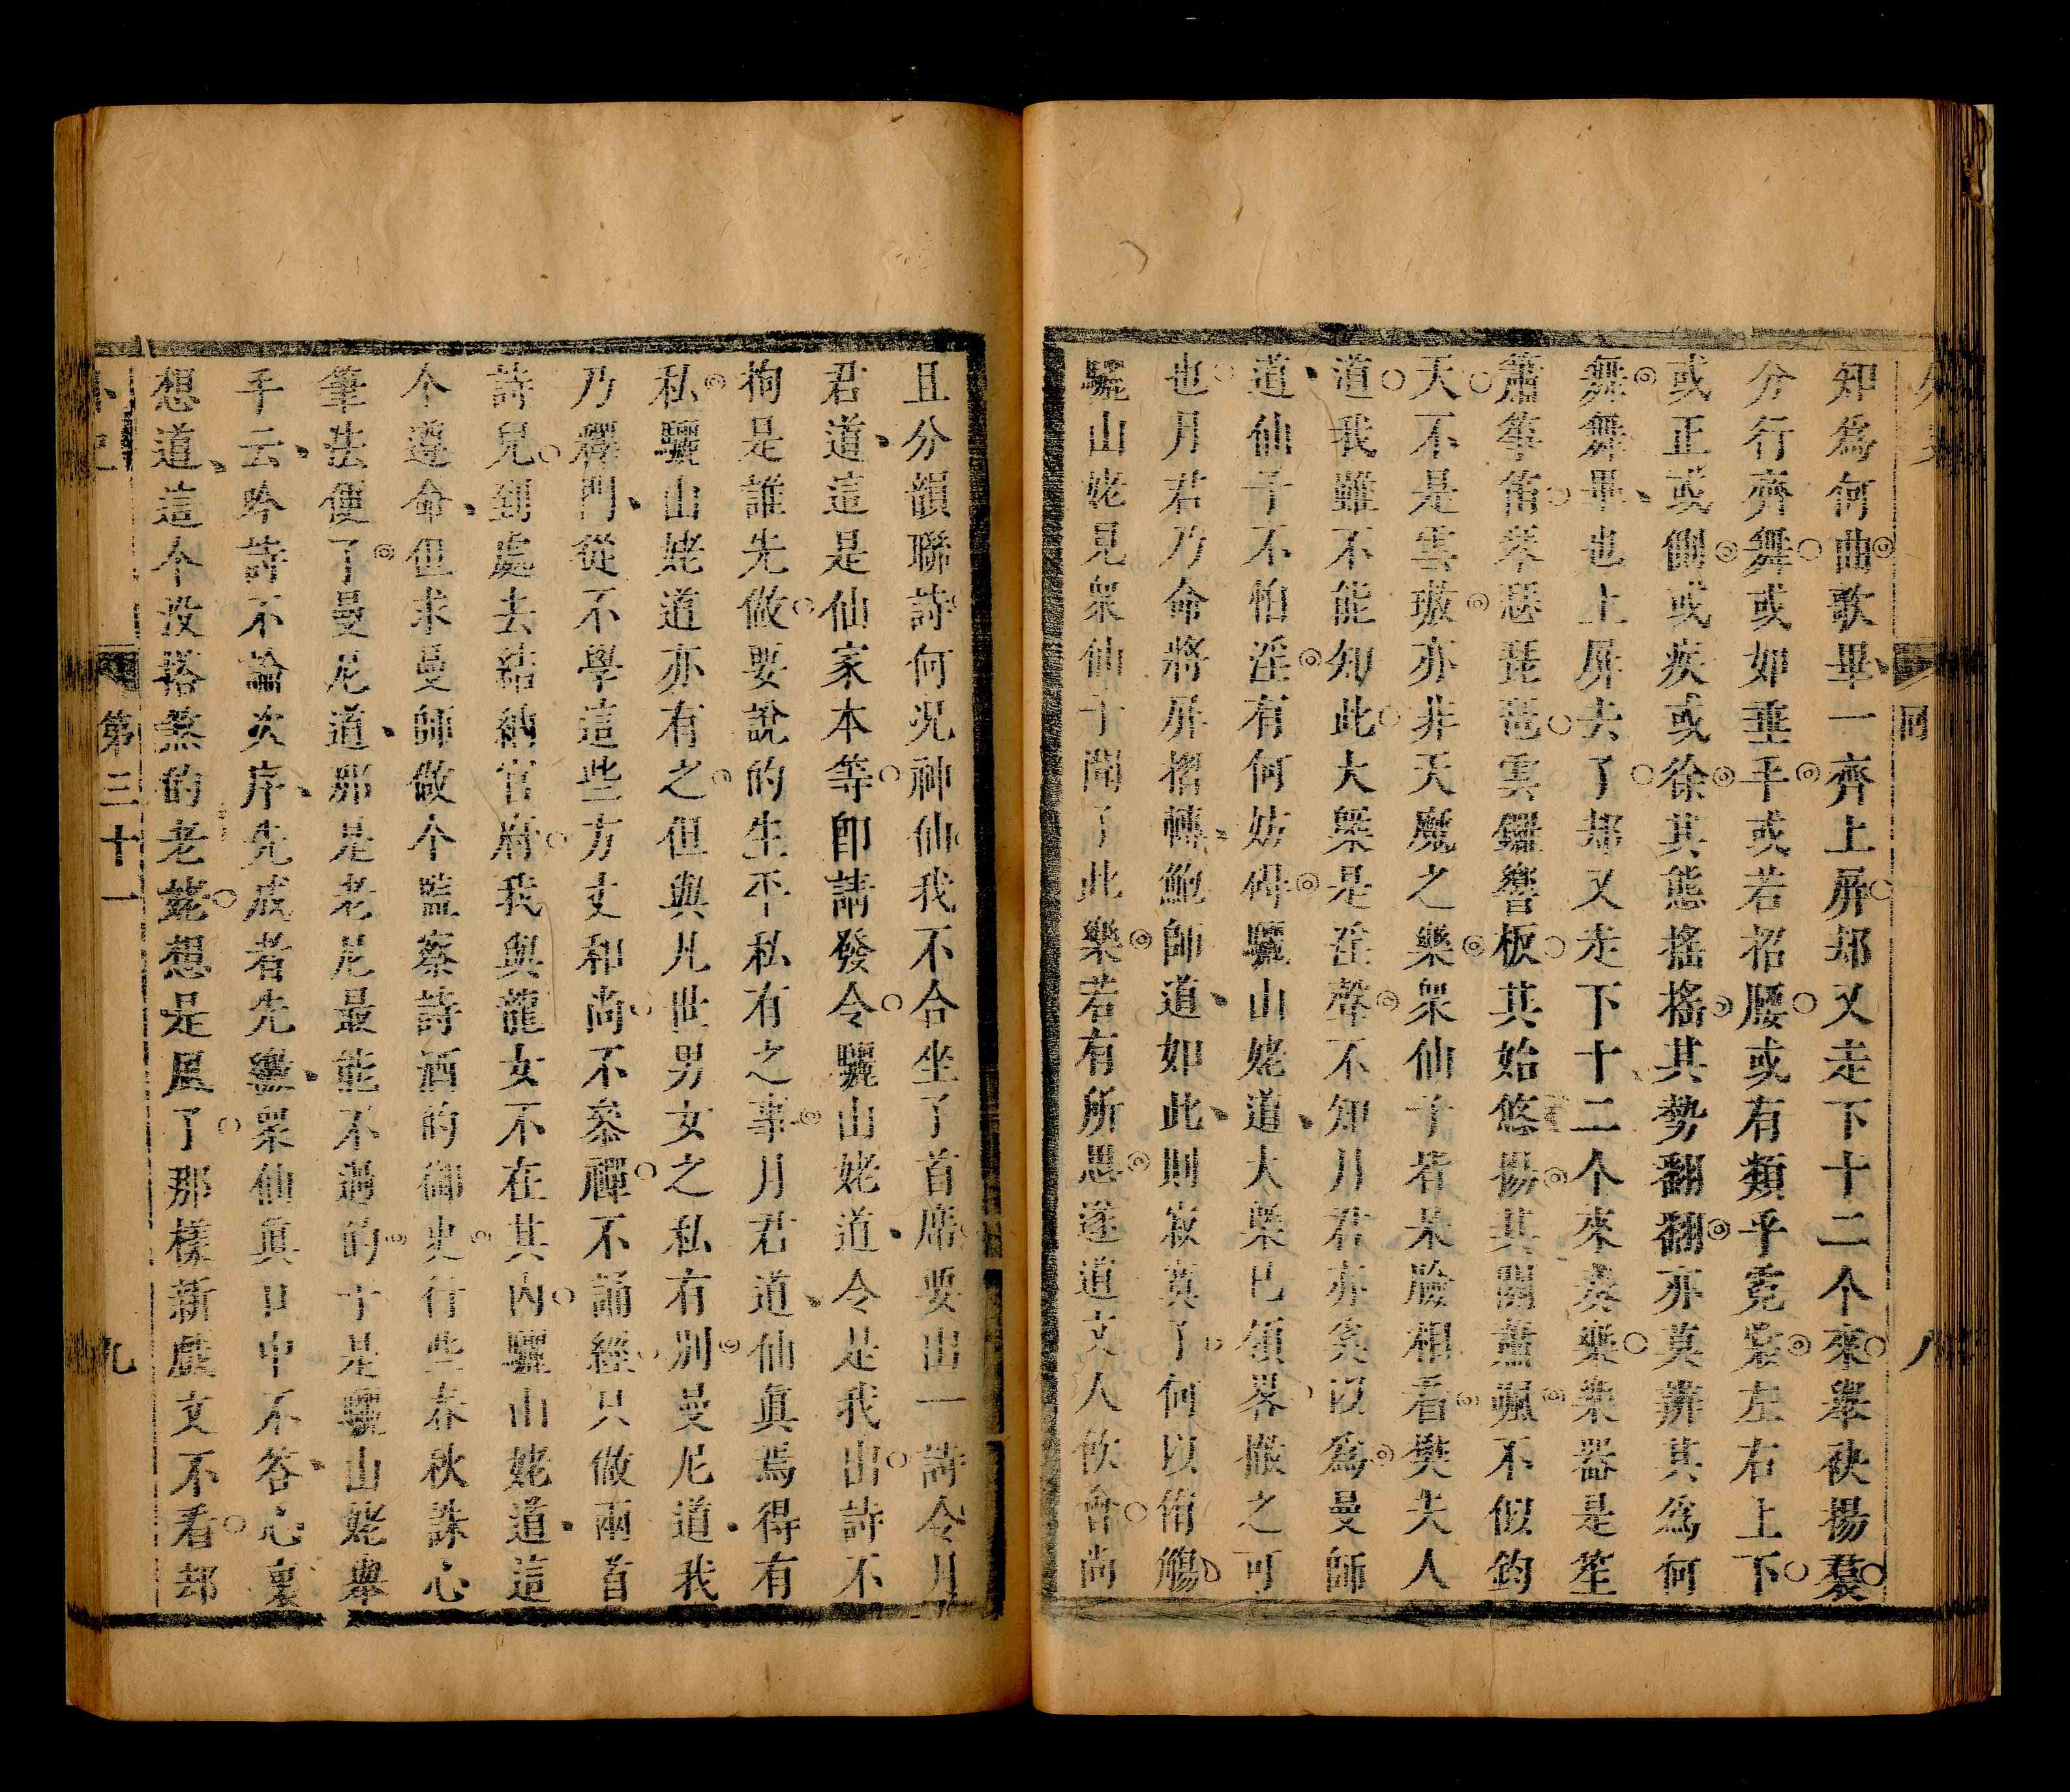 知爲何曲歌畢一齊上屏却又走下十二个來舉袂揚裙
分行齊舞或如垂手或若招腰或有類乎霓裳左右上下
或正或側或疾或徐其態搖搖其勢翻翻亦莫辨其爲何
舞舞畢也上屏去了却又走下十二个來奏樂樂器是笙
簫筝笛琴瑟琵琶雲鑼響板其始悠揚其闋蕭颯不似鈞
天不是雲璈亦非天魔之樂衆仙子皆呆臉相看樊夫人
道我雖不能知此大槩是淫聲不知月君亦爲曼師
道仙子不怕淫有何妨碍驪山姥道大槩已領畧撤之可
也月君乃命將屏摺轉鮑師道如此則寂寞了何以侑觴
驪山姥見衆仙子聞了此樂若有所思遂道文人飲會尚
且分韻聯詩何况神仙我不合坐了首席要出一詩令月
君道這是仙家本等卽請發令驪山姥道令是我出詩不
拘是誰先做要說的生平私有之事月君道仙眞焉得有
私驪山姥道亦有之但與凡世男女之私有別曼尼道我
乃釋門從不學這些方丈和尚不叅禪不誦經只做兩首
詩兒到處去結納官府我與龍女不在其內驪山姥道這
个遵命但求曼師做个監察詩酒的御史行些春秋誅心
筆法便了曼尼道那是老尼最能不過的于是驪山姥舉
手云吟詩不論次序先成者先繳衆仙眞口中不答心裏
想道這个没搭煞的老姥想是風了那樣新戲文不看却
回
八
第三十一
九